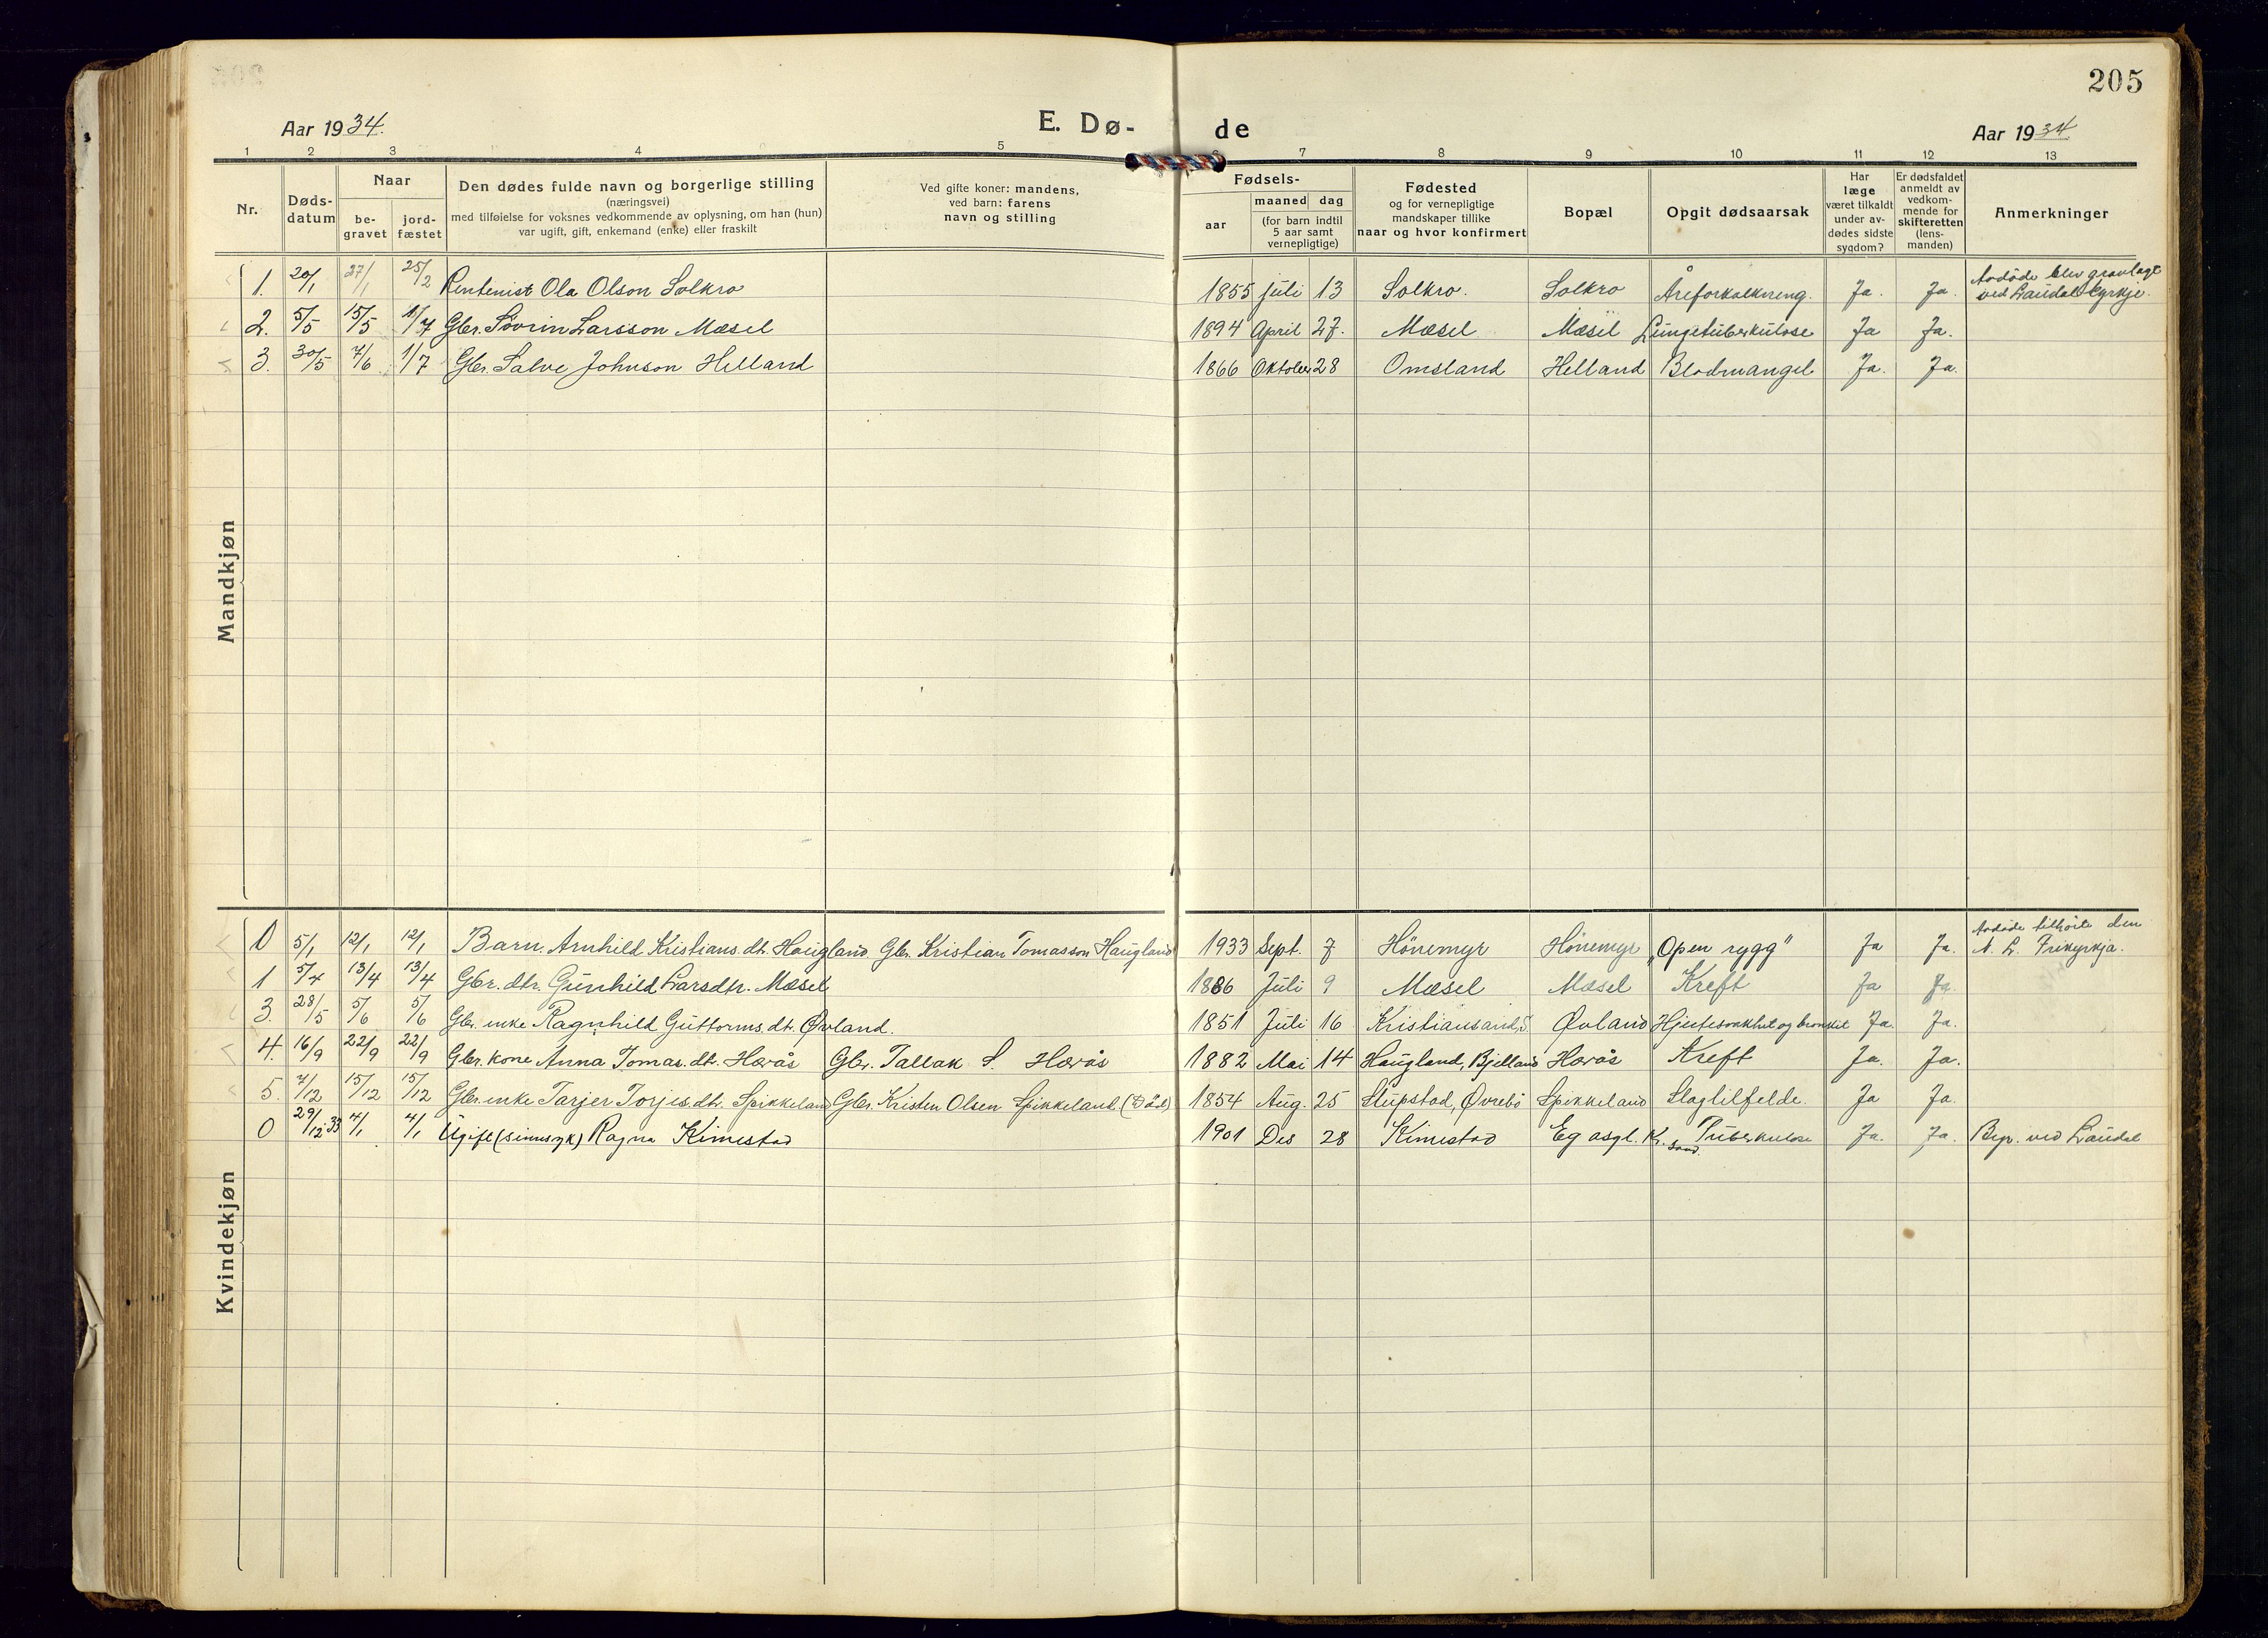 205
Aar 1934.
E. Dø-
de
Aar 1934
1 2 3 4 5 6 7 8 9 10 11 12 13
Nr.
Døds-
datum
Naar
be-
gravet
jord-
fæstet
Den dødes fulde navn og borgerlige stilling
(næringsvei)
med tilføielse for voksnes vedkommende av oplysning, om han (hun)
var ugift, gift, enkemand (enke) eller fraskilt
Ved gifte koner: mandens,
ved barn: farens
navn og stilling
Fødsels-
aar
maaned dag
(for barn indtil
5 aar samt
vernepligtige)
Fødested
og for vernepligtige
mandskaper tillike
naar og hvor konfirmert
Bopæl
Opgit dødsaarsak
Har
læge
været tilkaldt
under av-
dødes sidste
sygdom?
Er dødsfaldet
anmeldt av
vedkom-
mende for
skifteretten
(lens-
manden)
Anmerkninger
Mandkjøn
1. 20/1 27/1 25/2 Rentenist Ola Olson Solkro 1855 juli 13 Solkro. Solkro Åreforkalkning. Ja. Ja. Avdöde blev gravlagt
ved Laudal kyrkje.
2. 5/5 15/5 1/7 Gbr. Sövrin Larsson Mæsel 1894 April 27. Mæsel Mæsel Lungetuberkulose Ja Ja.
3. 30/5 7/6 1/7 Gbr. Salve Johnson Helland 1866 Oktober 28 Omsland Helland Blodmangel Ja. Ja.
Kvindekjøn
0 5/1 12/1 12/1 Barn. Arnhild Kristians.dt. Haugland Gbr. Kristian Tomasson Haugland 1933 Sept. 7 Hönemyr Hönemyr „Open rygg" Ja Ja. Avdöde tilhörte den
N. L. Frikyrkja.
1 5/4 13/4 13/4 Gbr. dtr. Gunhild Larsdtr. Mæsel 1886 Juli 9 Mæsel Mæsel Kreft Ja Ja.
3. 28/5 5/6 5/6 Gbr. enke Ragnhild Guttorms.dt. Øvland. 1851 Juli 16 Kristiansand, S. Øvland Hjertesvakhet og bronkit Ja. Ja.
4. 16/9 22/9 22/9 Gbr. kone Anna Tomas.dt. Hærås Gbr. Tallak S. Hærås 1882 Mai 14 Haugland, Bjelland Hærås Kreft Ja. Ja.
5. 7/12 15/12 15/12 Gbr. enke Tarjer Torjes.dtr. Spikkeland Gbr. Kristen Olsen Spikkeland. (Död) 1854 Aug. 25 Stupstad, Øvrebö Spikkeland Slagtilfelde. Ja Ja.
0 29/12 33 4/1 4/1 Ugift (sinnsyk) Ragna Kimestad 1901 Des 28 Kimestad Eg asyl. Kr.sand. Tuberkulose Ja. Ja. Begr. ved Laudal